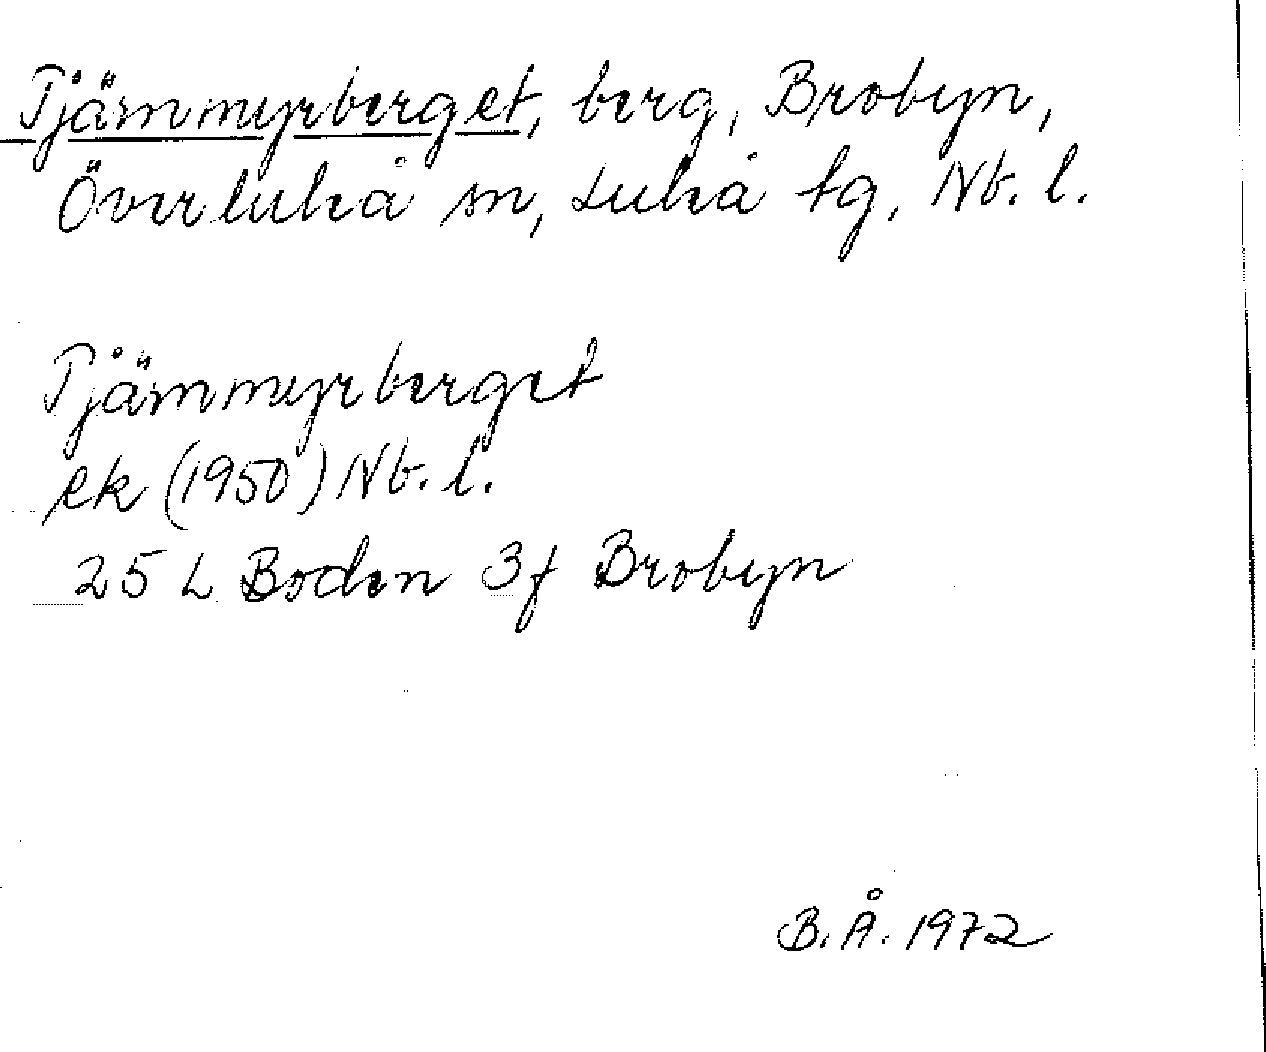 Tjärnmyrberget, berg, Brobyn,
Överluleå sn, Luleå tg, Nb. l.
Tjärnmyrberget
ek (1950) Nb. l.
25 L Boden 3f Brobyn
B.Å. 1972